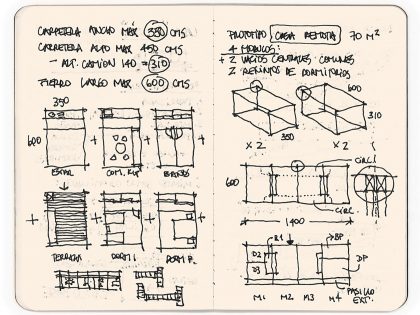 CARRETERA ANCHO MÁX 380 CMS
CARRETERA ALTO MAX 450 CMS
- ALT. CAMIÓN 140 = 310
FIERRO LARGO MAX 600 CMS
350
600
ESTAR
COM. KIT
BAÑOS
TERRAZA
DORM 1
DORM P.
PROTOTIPO CASA REMOTA 70 M²
4 MÓDULOS:
+ 2 VACIOS CENTRALES COMUNES
2 RECINTOS DE DORMITORIOS
600
310
350
X 2
X 2
CIRC 1
600
CIRC.
1400
B1
BP
D2
D3
DP
PASILLO
EXT.
M1 M2 M3 M4